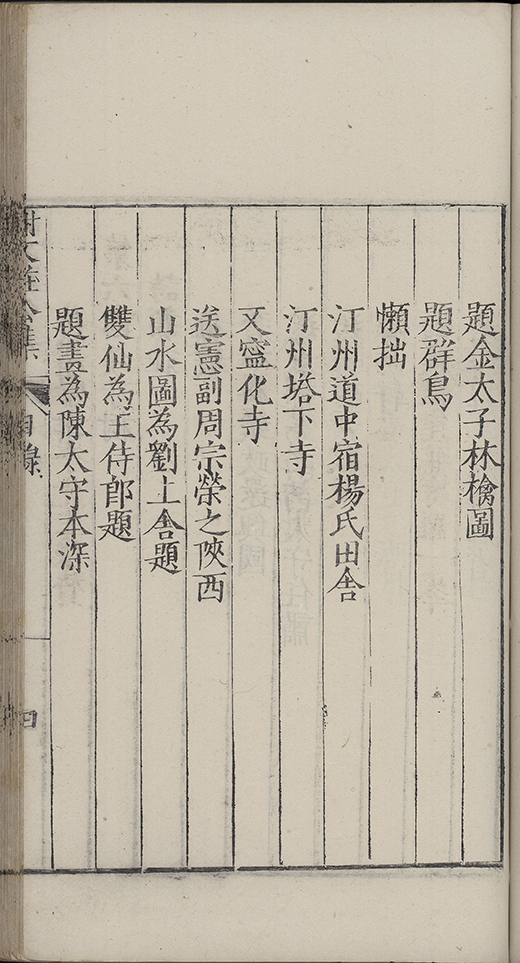 題金太子林檎圖
題群鳥
懶拙
汀州道中宿楊氏田舍
汀州塔下寺
又寧化寺
送憲副周宗榮之陝西
山水圖為劉上舍題
雙仙為王侍郎題
題畫為陳太守本深
文莊公集 目錄 四